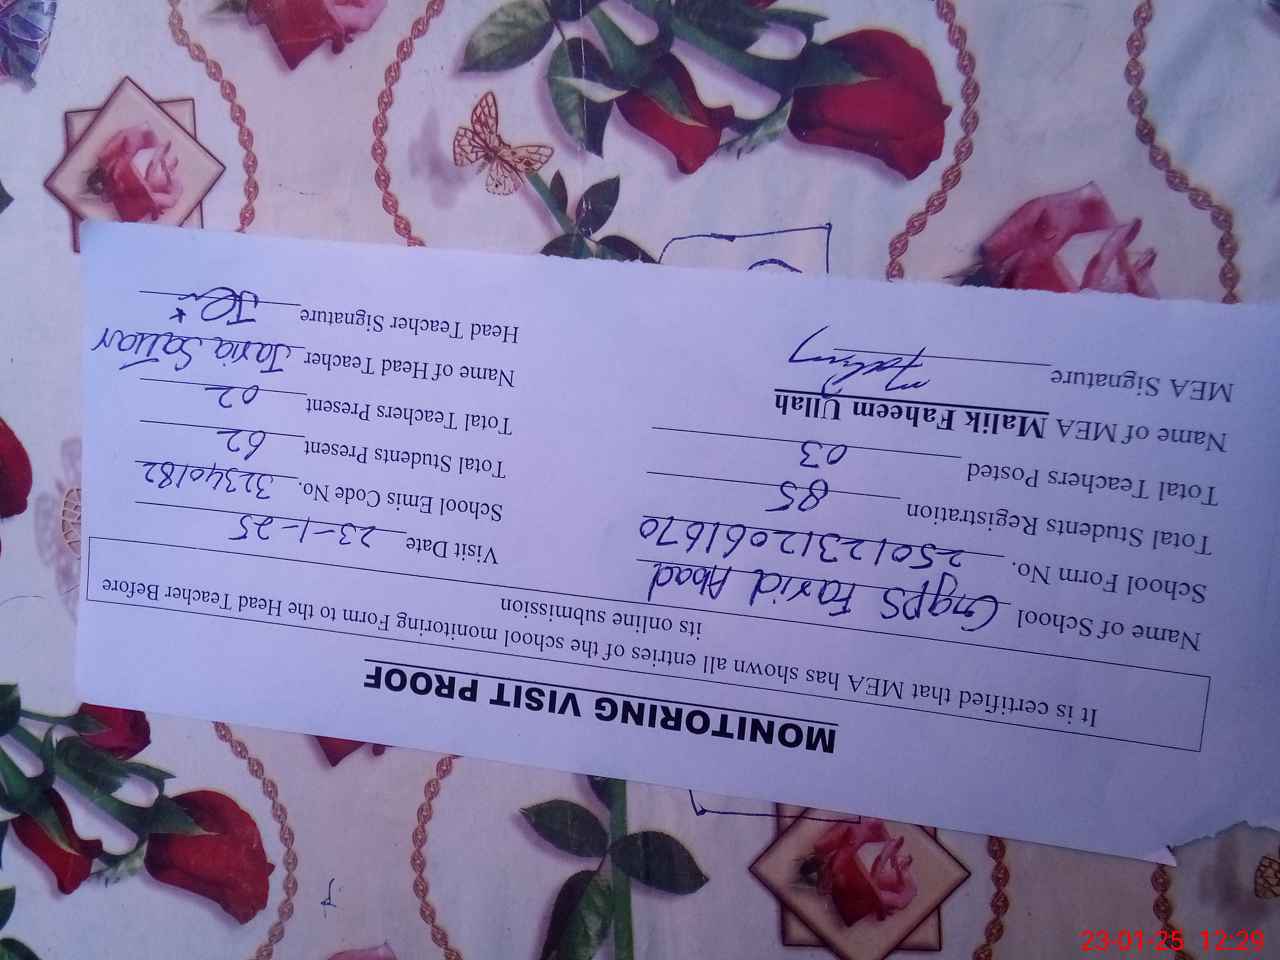 MONITORING VISIT PROOF
It is certified that MEA has shown all entries of the school monitoring Form to the Head Teacher Before
its online submission
Name of School GgPS Farid Abad
Visit Date 23-1-25
School Form No. 25012312061670
School Emis Code No. 32340182
Total Students Registration 85
Total Students Present 62
Total Teachers Posted 03
Total Teachers Present 02
Name of MEA Malik Faheem Ullah
Name of Head Teacher Javia Sattar
MEA Signature
Head Teacher Signature
23-01-25 12:29